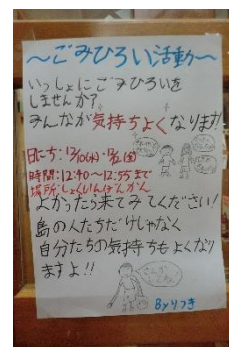 ～ごみひろい活動～
いっしょにごみひろいを
しませんか?
みんなが気持ちよくなります!
日にち:12/10(水)・12/12(金)
時間:12:40～12:55まで
場所:しょくいんげんかん
よかったら来てみてください!
島の人たちだけじゃなく
自分たちの気持ちもよくなり
ますよ!!
Byりつき